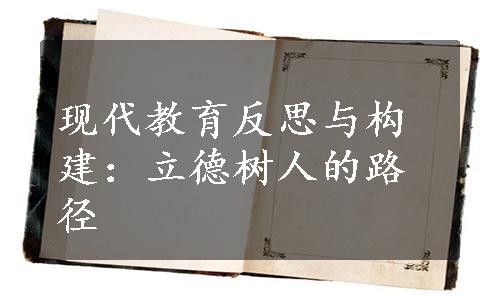 现代教育反思与构
建：立德树人的路
径